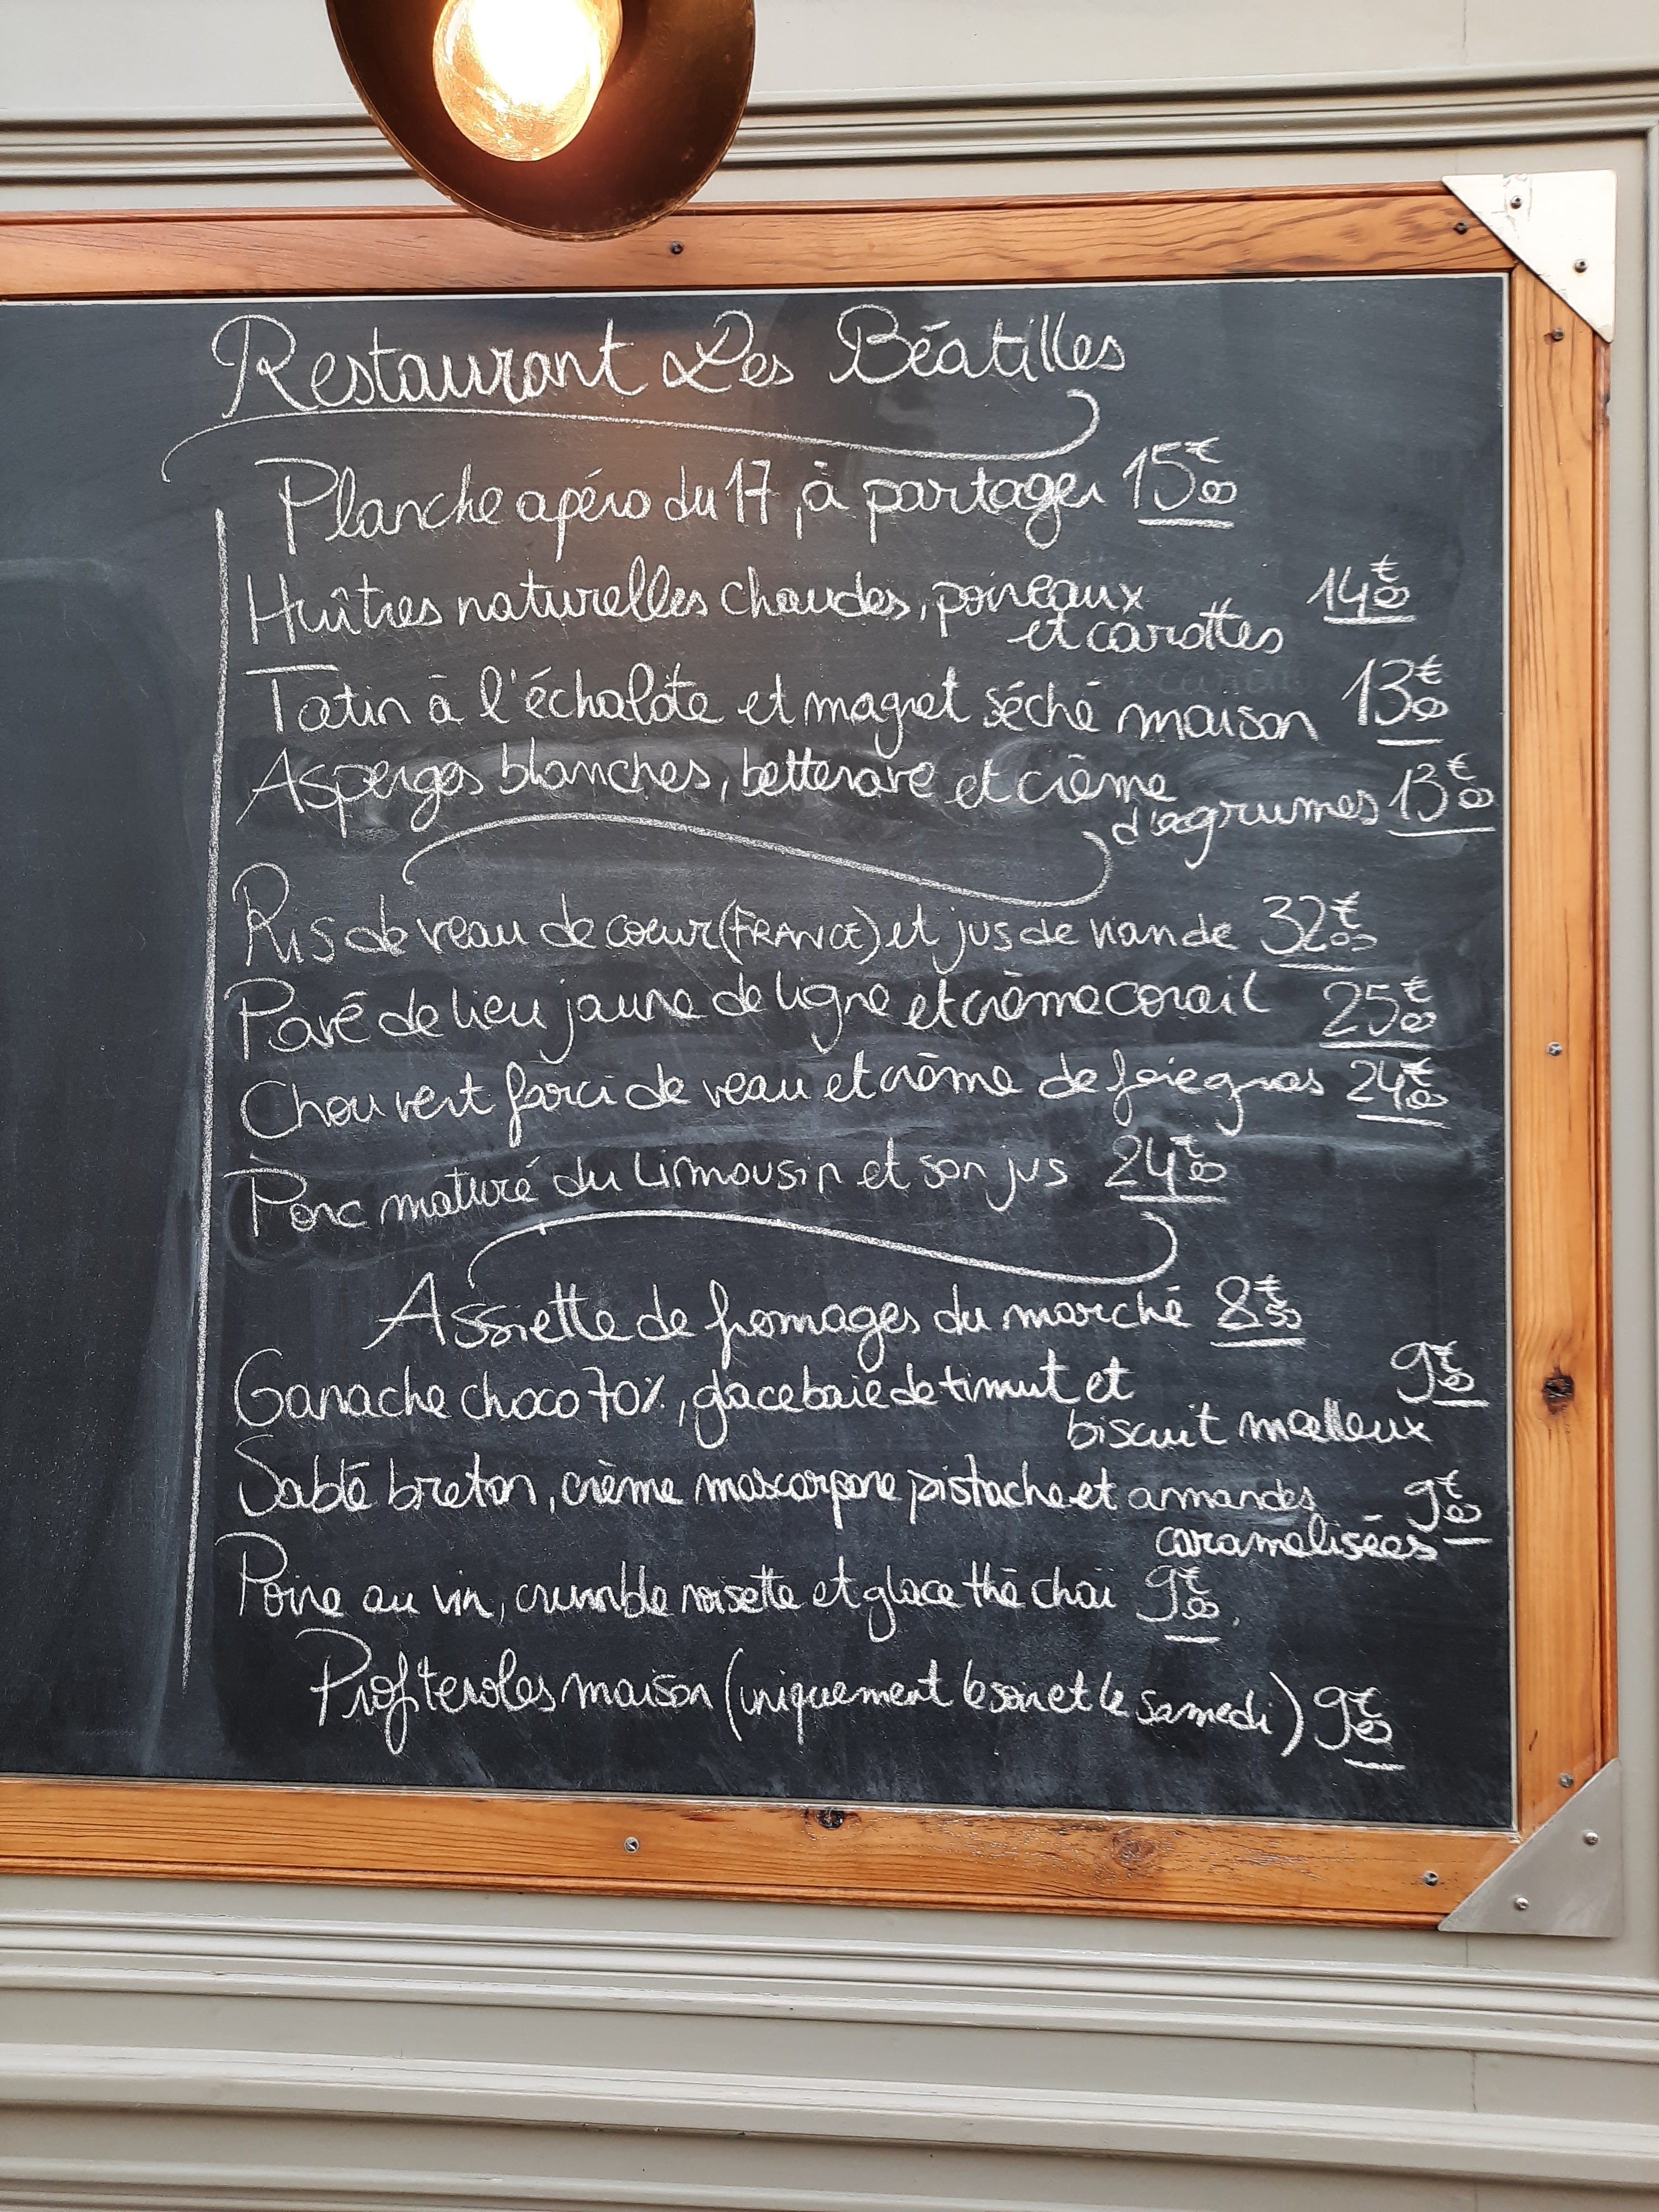 Restaurant Les Béatilles
Planche apéro du 17, à partager 15€00
Huîtres naturelles chaudes, poireaux 14€00
et carottes
Tatin à l'échalote et magret séché maison 13€00
Asperges blanches, betterave et crème
d'agrumes 13€00
Ris de veau de coeur (FRANCE) et jus de viande 32€00
Pavé de lieu jaune de ligne et crème corail 25€00
Chou vert farci de veau et crème de foie gras 24€00
Porc maturé du Limousin et son jus 24€00
Assiette de fromages du marché 8€50
Ganache choco 70%, glace baie de timut et 9€00
biscuit moelleux
Sablé breton, crème mascarpone pistache et amandes 9€00
caramelisées
Poire au vin, crumble noisette et glace thé chaï 9€00
Profiteroles maison (uniquement le soir et le samedi) 9€00